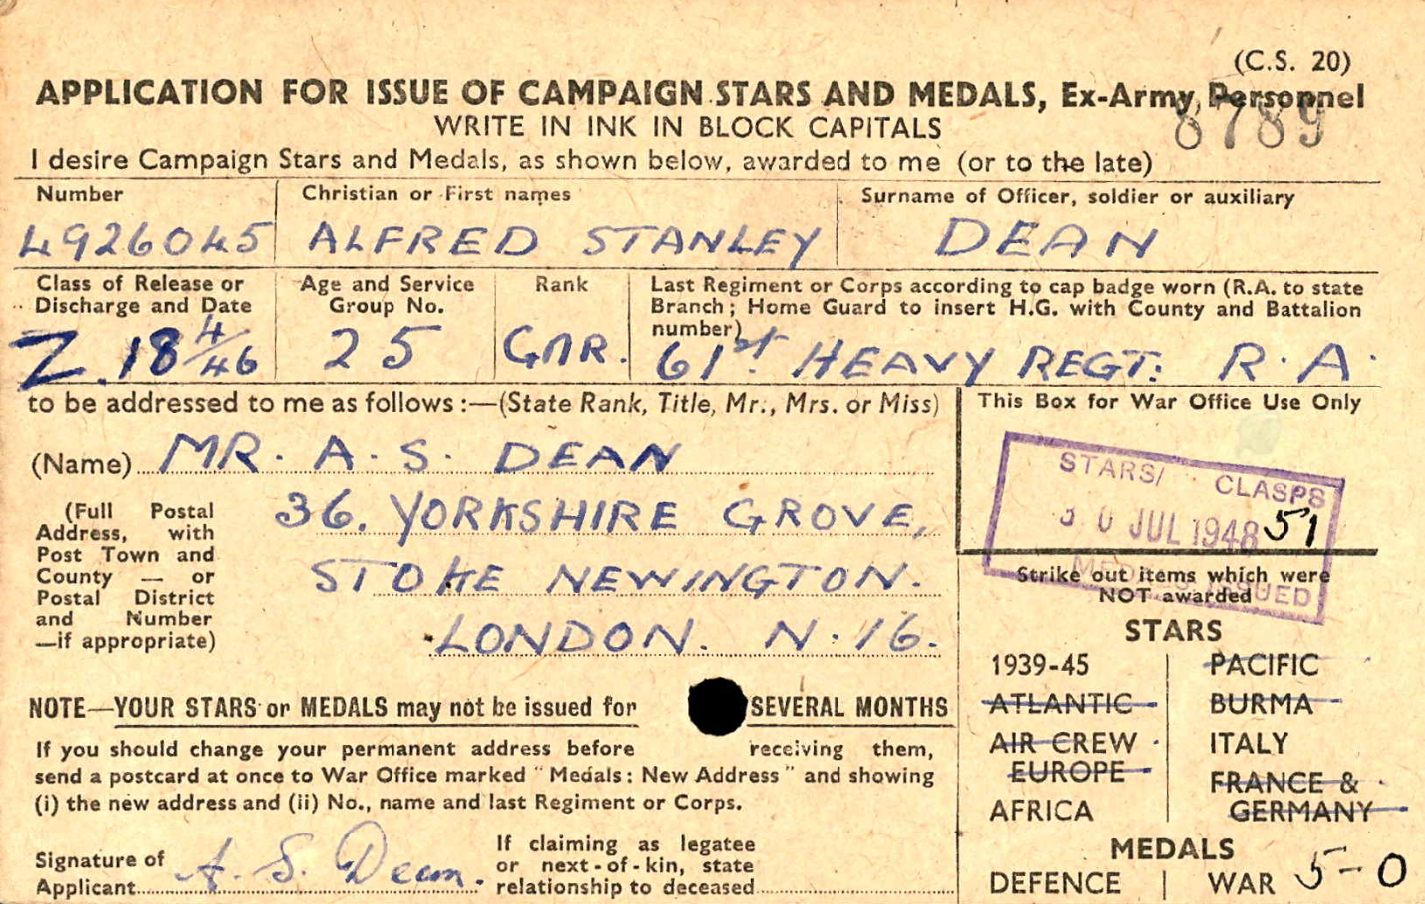 (C.S. 20)
APPLICATION FOR ISSUE OF CAMPAIGN STARS AND MEDALS, Ex-Army Personnel
8789
WRITE IN INK IN BLOCK CAPITALS
I desire Campaign Stars and Medals, as shown below, awarded to me (or to the late)
Number Christian or First names Surname of Officer, soldier or auxiliary
4926045 ALFRED STANLEY DEAN
Class of Release or Discharge and Date
Age and Service Group No.
Rank
Last Regiment or Corps according to cap badge worn (R.A. to state
Branch; Home Guard to insert H.G. with County and Battalion
number)
Z. 18 4/46 25 GNR. 61st HEAVY REGT: R.A.
to be addressed to me as follows:—(State Rank, Title, Mr., Mrs. or Miss)
(Name) MR. A. S. DEAN
(Full Postal
Address, with
Post Town and
County — or
Postal District
and Number
—if appropriate)
36. YORKSHIRE GROVE,
STOKE NEWINGTON.
LONDON. N. 16.
This Box for War Office Use Only
STARS/ CLASPS
30 JUL 1948 51
MEDALS ISSUED
Strike out items which were
NOT awarded
STARS
1939-45 PACIFIC
ATLANTIC BURMA
AIR CREW ITALY
EUROPE FRANCE &
AFRICA GERMANY
MEDALS
DEFENCE WAR 5-0
NOTE—YOUR STARS or MEDALS may not be issued for SEVERAL MONTHS
If you should change your permanent address before receiving them,
send a postcard at once to War Office marked "Medals: New Address" and showing
(i) the new address and (ii) No., name and last Regiment or Corps.
Signature of
Applicant A. S. Dean.
If claiming as legatee
or next-of-kin, state
relationship to deceased